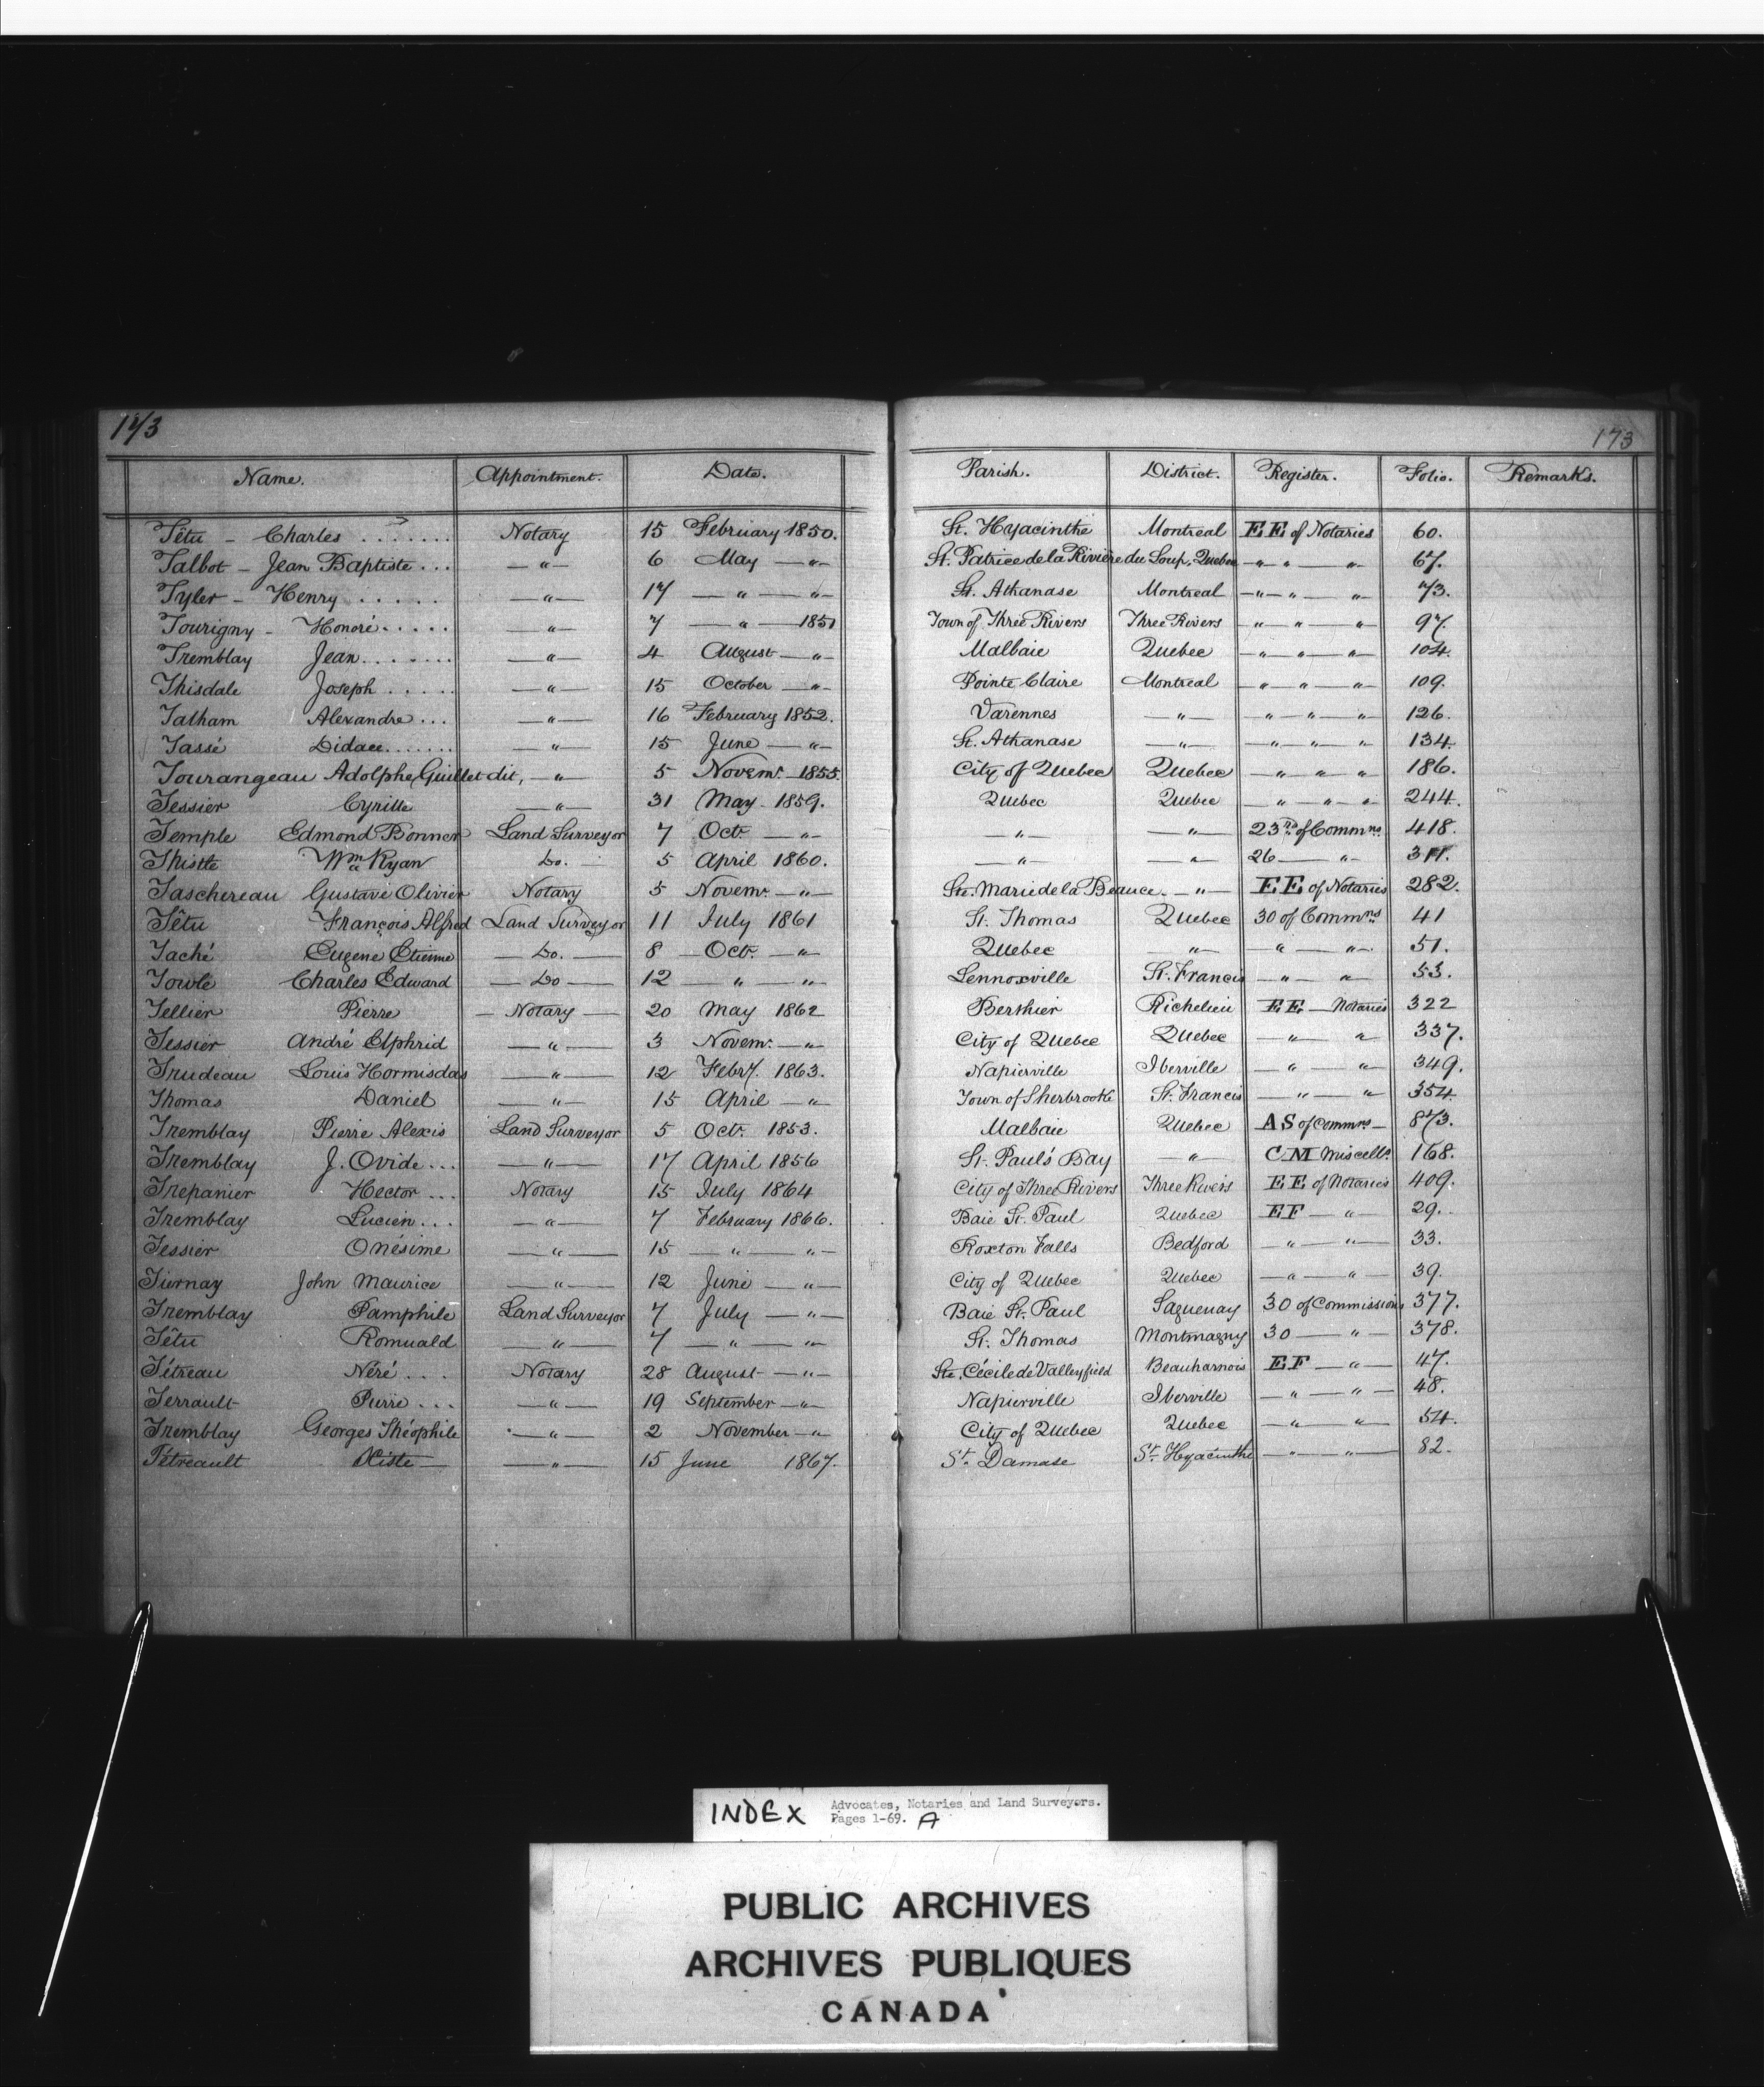 173 173
Name. Appointment. Date. Parish. District. Register. Folio. Remarks.
Têtu - Charles ....... Notary 15 February 1850. St. Hyacinthe Montreal EE of Notaries 60.
Talbot - Jean Baptiste ... —"— 6 May —"— St. Patrice de la Rivière du Loup, Quebec —"— " —"— 67.
Tyler - Henry ..... —"— 17 —"— —"— St. Athanase Montreal —"— " —"— 73.
Tourigny - Honoré ..... —"— 7 —"— 1851 Town of Three Rivers Three Rivers —"—"—"— 97.
Tremblay Jean ....... —"— 4 August —"— Malbaie Quebec —"—"—"— 104.
Thisdale Joseph ..... —"— 15 October —"— Pointe Claire Montreal —"—"—"— 109.
Tatham Alexandre ... —"— 16 February 1852. Varennes —"— "—"—" 126.
Tassé Didace ....... —"— 15 June —"— St. Athanase —"— —"—"—" 134.
Tourangeau Adolphe, Guillet dit, —"— 5 Novemr. 1855. City of Quebec Quebec —"—"—" 186.
Tessier Cyrille —"— 31 May - 1859. Quebec Quebec —"—"—" 244.
Temple Edmond Bonner Land Surveyor 7 Octr. —"— —"— —"— 23rd of Commns. 418.
Thistle Wm. Ryan Do. 5 April 1860. —"— " 26 —"— 311.
Taschereau Gustave Olivier Notary 5 Novemr. —"— Ste. Marie de la Beauce. —"— EE of Notaries 282.
Têtu François Alfred Land Surveyor 11 July 1861 St. Thomas Quebec 30 of Commns 41
Taché Eugene Etienne — Do. — 8 — Octr. —"— Quebec "— —"—"— 51.
Towle Charles Edward — Do — 12 —"— —"— Lennoxville St. Francis —"—"— 53.
Tellier Pierre — Notary — 20 May 1862 Berthier Richelieu EE — Notaries 322
Tessier André Elphrid —"— 3 Novemr. —"— City of Quebec Quebec —"— " 337.
Trudeau Louis Hormisdas —"— 12 Febry. 1863. Napierville Iberville —"—"— 349.
Thomas Daniel —"— 15 April —"— Town of Sherbrooke St. Francis —"—"— 354
Tremblay Pierre Alexis Land Surveyor 5 Octr. 1853. Malbaie Quebec AS of Commns — 873.
Tremblay J. Ovide ... —"— 17 April 1856 St. Paul's Bay —"— CM Miscells. 168.
Trepanier Hector ... Notary 15 July 1864 City of Three Rivers Three Rivers EE of Notaries 409.
Tremblay Lucien ... —"— 7 February 1866. Baie St. Paul Quebec EF —"— 29.
Tessier Onésime —"— 15 —"— —"— Roxton Falls Bedford —"—"— 33.
Tiernay John Maurice —"— 12 June —"— City of Quebec Quebec —"—"— 39.
Tremblay Pamphile Land Surveyor 7 July —"— Baie St. Paul Saguenay 30 of Commissions 377.
Têtu Romuald —"— 7 —"— —"— St. Thomas Montmagny 30 —"— 378.
Tétreau Néré ... Notary 28 August —"— Ste. Cécile de Valleyfield Beauharnois EF —"— 47.
Terrault Pierre ... —"— 19 September —"— Napierville Iberville —"—"— 48.
Tremblay Georges Théophile —"— 2 November —"— City of Quebec Quebec —"—"— 54.
Tétreault Xiste — —"— 15 June 1867. St. Damase St. Hyacinthe —"—"— 82.
INDEX Advocates, Notaries and Land Surveyors.
Pages 1-69. A
PUBLIC ARCHIVES
ARCHIVES PUBLIQUES
CANADA